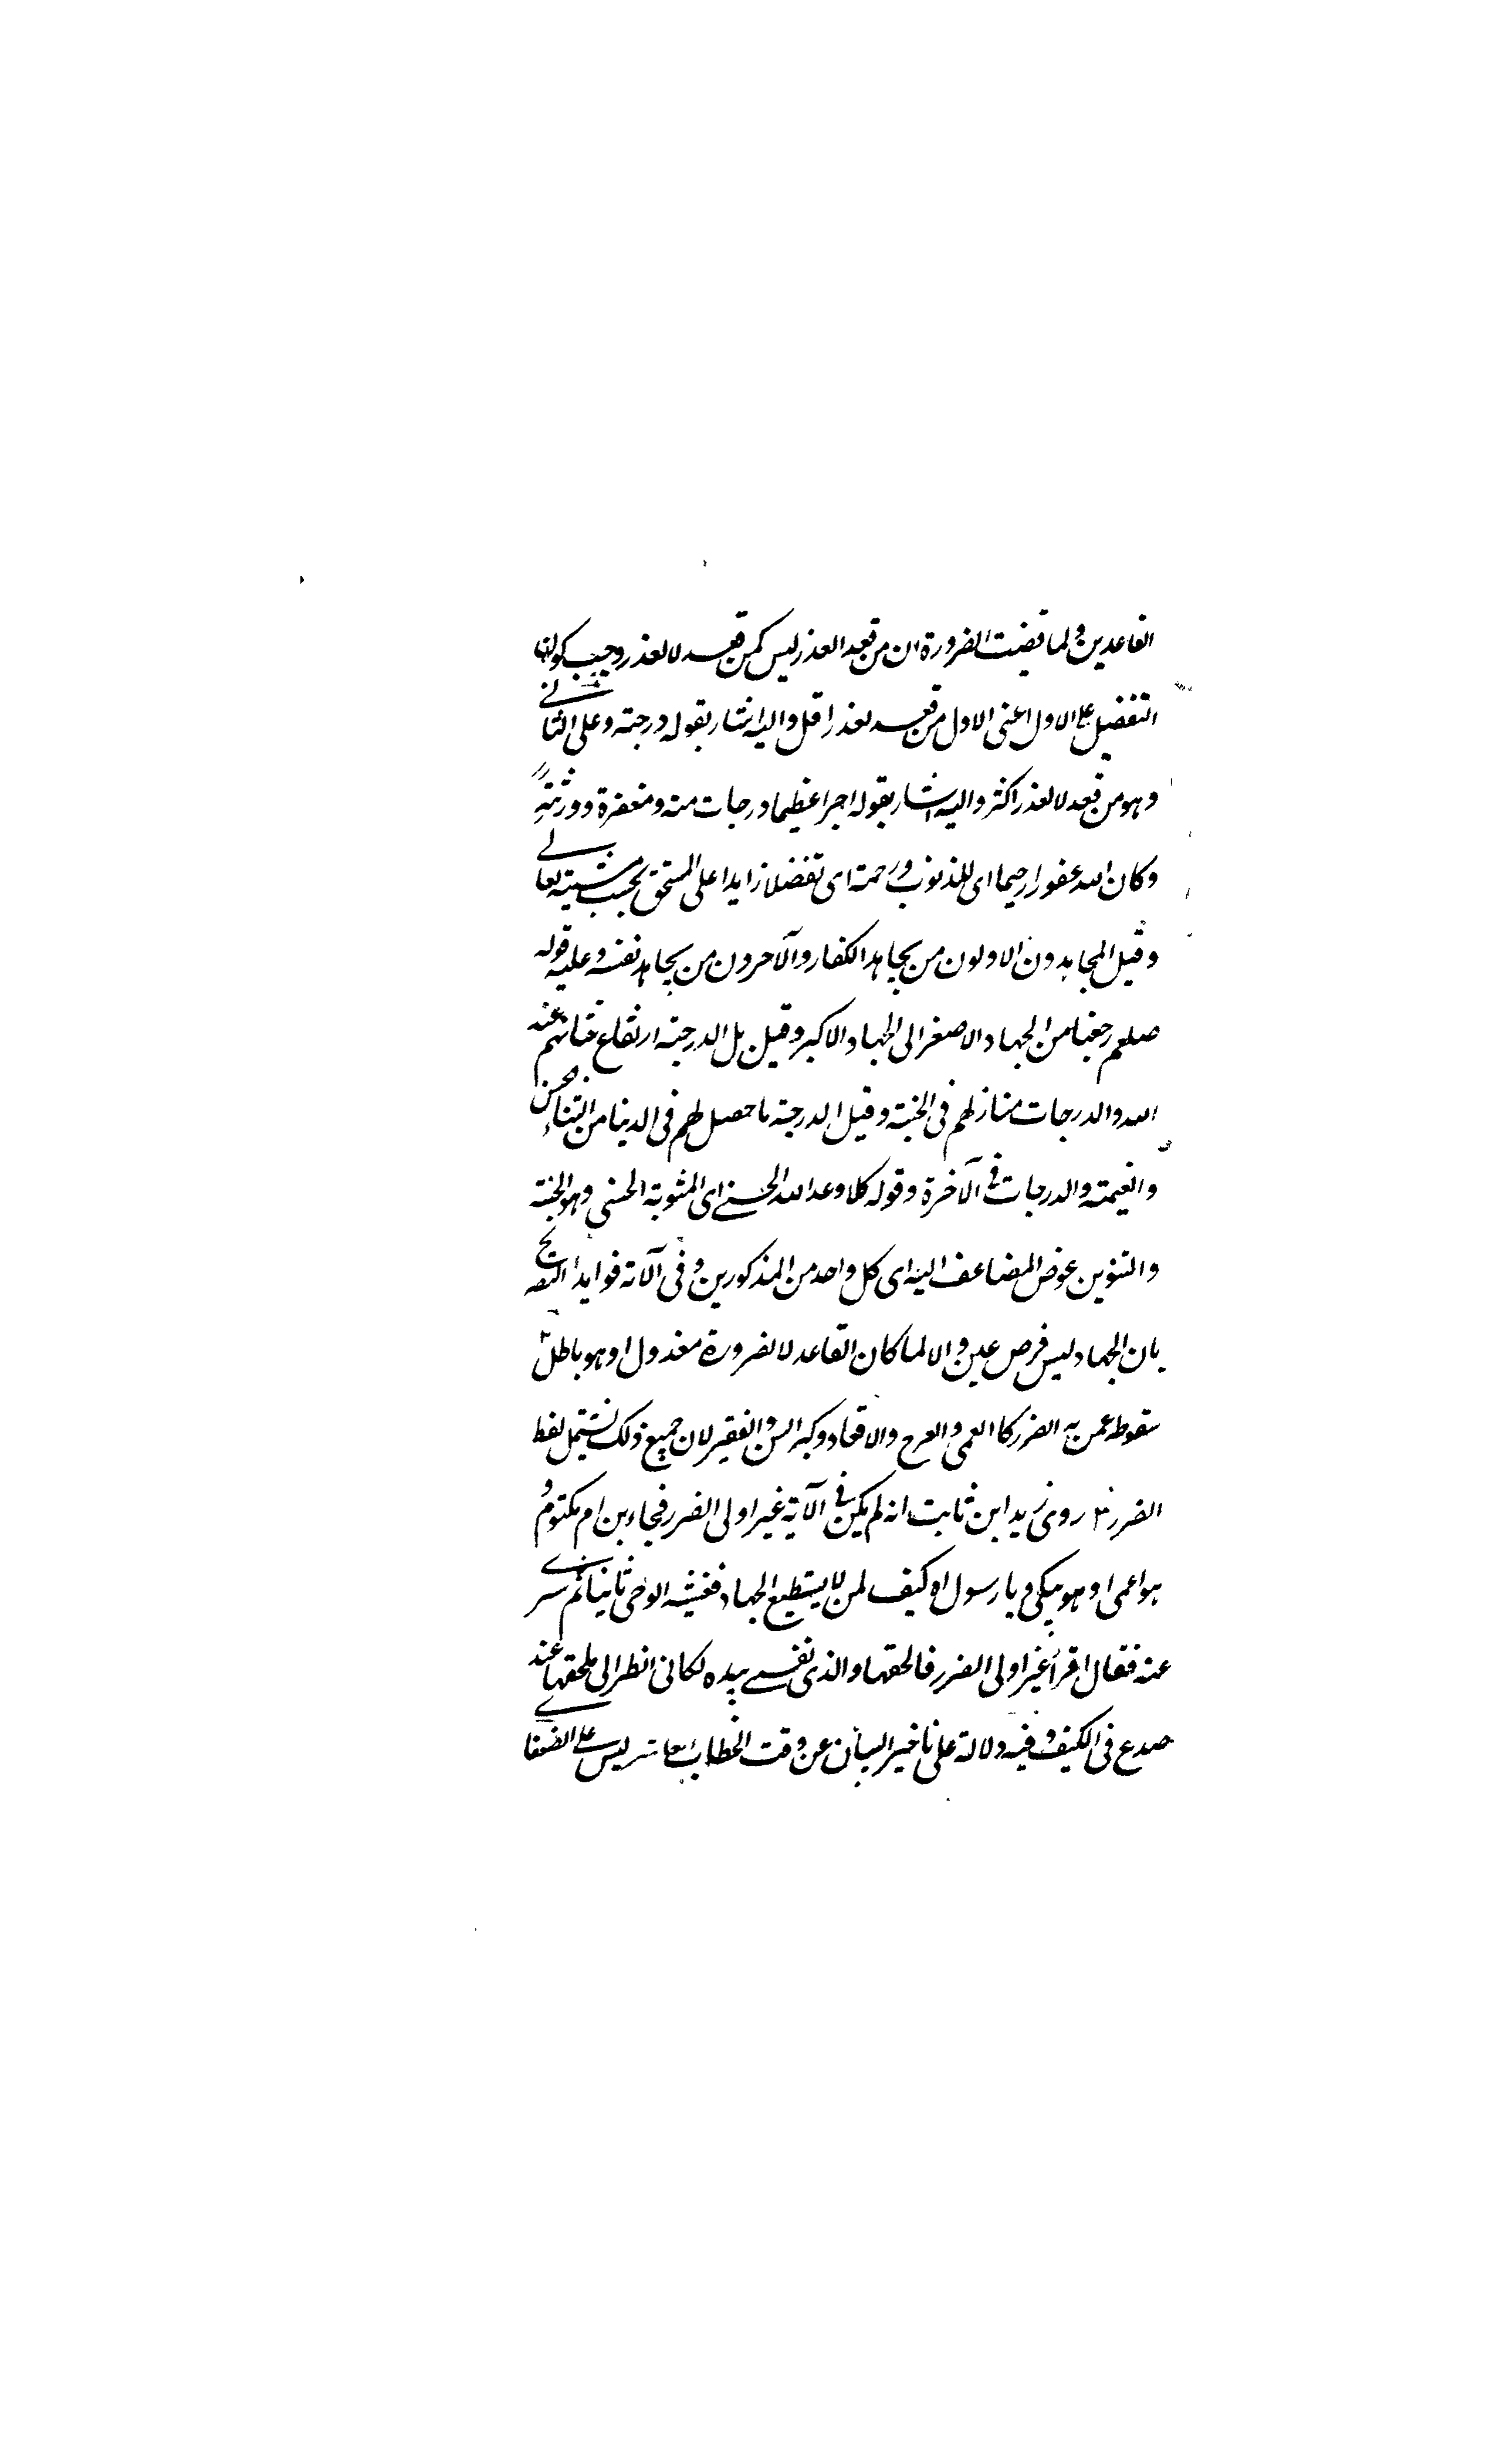 القاعدين ولما قضيت الضرورة ان من قعد العذر ليس كمن قعد لا لعذر وجب كون
التفضيل على الاول اعنى الاول من قعد لعذر اقل واليه اشار بقوله درجة وعلى الثانى
وهو من قعد لا لعذر اكثر واليه اشار بقوله اجرا عظيما درجات منه ومغفرة ورحمة
وكان الله غفورا رحيما اى للذنوب ورحمة اى تفضلا زايدا على المستحق بحسب مشيته تعالى
وقيل المجاهدون الاولون من يجاهد الكفار والآخرون من يجاهد نفسه وعليه قوله
صلعم رجعنا من الجهاد الاصغر الى الجهاد الاكبر وقيل بل الدرجة ارتفاع شانهم عند
الله والدرجات منازلهم فى الجنة وقيل الدرجة ما حصل لهم فى الدنيا من الثناء الحسن
والغنيمة والدرجات فى الآخرة وقوله كلا وعد الله الحسنى اى المثوبة الحسنى وهو الجنة
والتنوين عوض المضاف اليه اى كل واحد من المذكورين وفى الآية فوايد التصريح
بان الجهاد ليس فرض عين والا لما كان القاعد لا لضرورة معذولا وهو باطل ٢
سقوطه عمن به الضرر كا العمى والعرج والاقعاد وكبر السن والفقير لان جميع ذلك يشتمل لفظ
الضرر ٣ روى زيد ابن ثابت انه لم يكن فى الآية غير اولى الضرر فجاء بن ام مكتوم و
هو اعمى وهو يبكى ويا رسول اه كيف لمن لا يستطيع الجهاد فغشيه الوحى ثانيا ثم سرى
عنه فقال اقرأ غير اولى الضرر فالحقها والذى نفسى بيده لكانى انظر الى ملحقها عند
صدع فى الكتف وفيه دلالة على تاخير البيان عن وقت الخطاب ليس على الضعفا